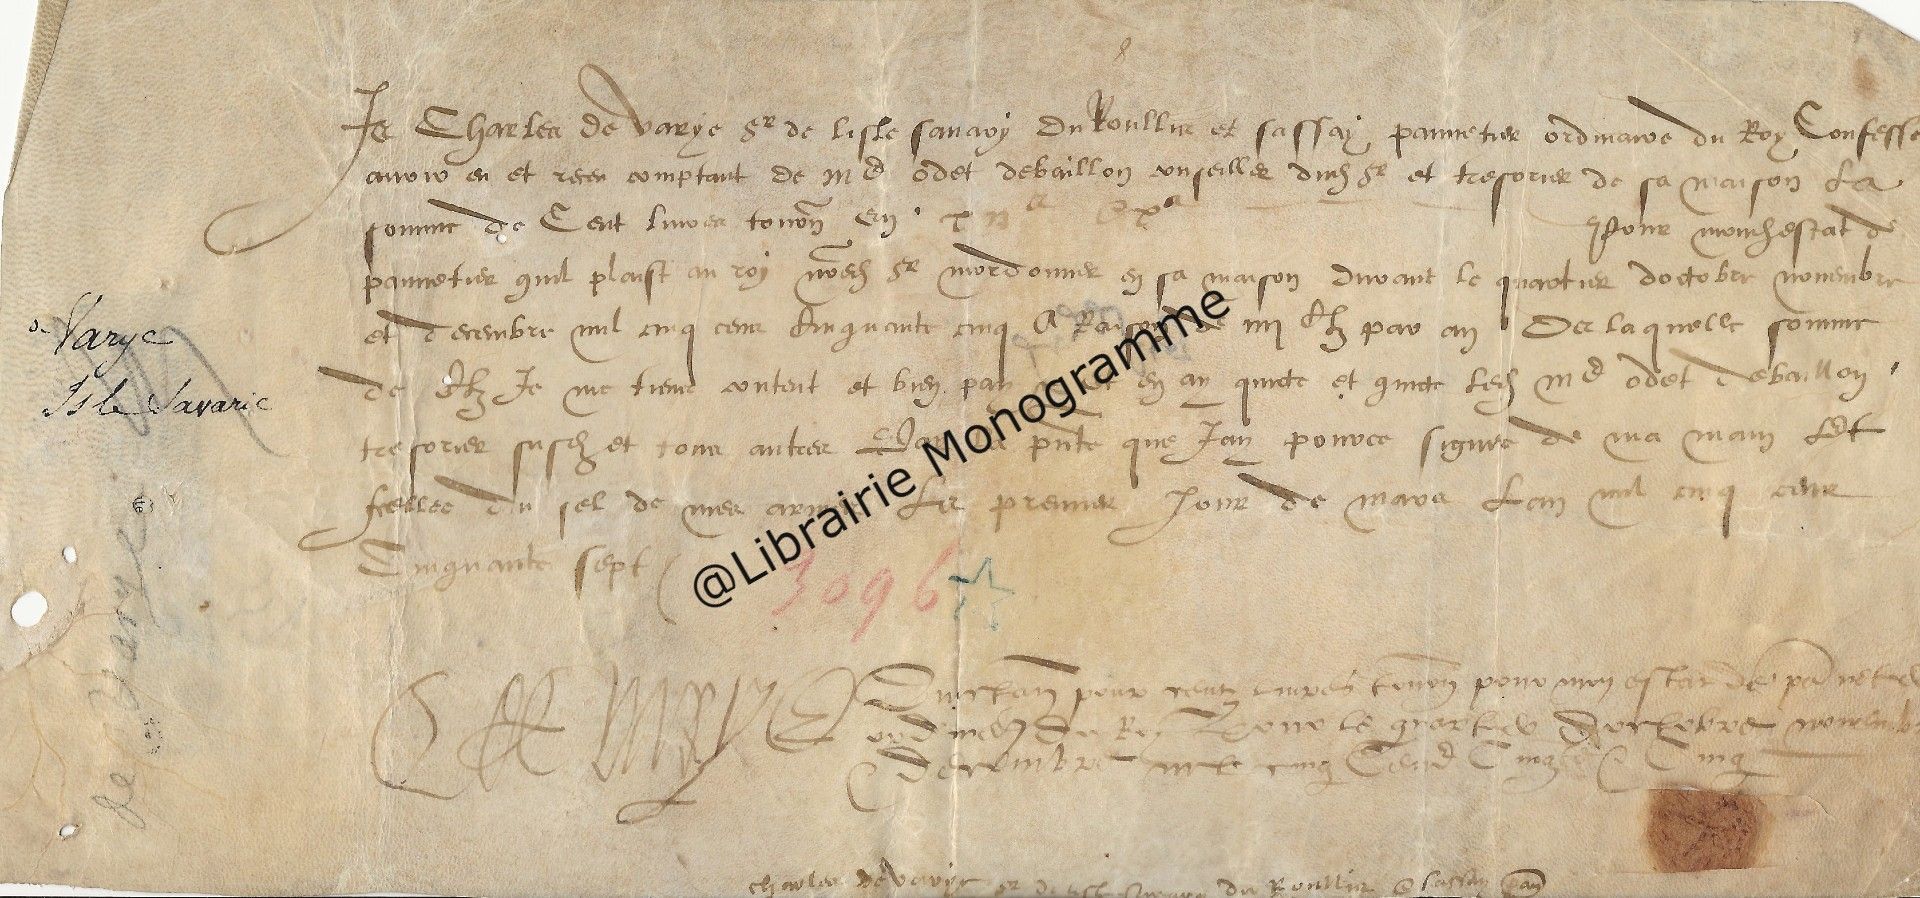 Je Charles de Varye sr de Lisle Savary du Roullier et Sassay pannetier ordinaire du Roy Confesse
avoir eu et receu comptant de Me Odet de Baillon conseiller dud sr et tresorier de sa maison La
somme de Cent livres tourn en Pour mondestat de
pannetier quil plaist au roy nred sr mordonner en sa maison durant le quartier doctobre novembre
et decembre mil cinq cens cinquante cinq A Raison de iiii par an De laquelle somme
de Je me tiens content et bien paié et en ay quicté et quicte led Me Odet de Baillon
tresorier susd et tous autres Par la pnte que Jay pource signée de ma main Et
scellée du sel de mes armes Le premier Jour de mars Lan mil cinq cens
Cinquante sept
3096
de Varye
Isle Savarie
de Varye
C de Varye
Quictan pour cent livres tourn pour mon estat de pannetier
ordinere du Roy Pour le quartier doctobre novembre
decembre mil cinq Cens Cinqte Cinq
Charles de Varye sr de Lisle Savary du Roullier et Sassay
@Librairie Monogramme